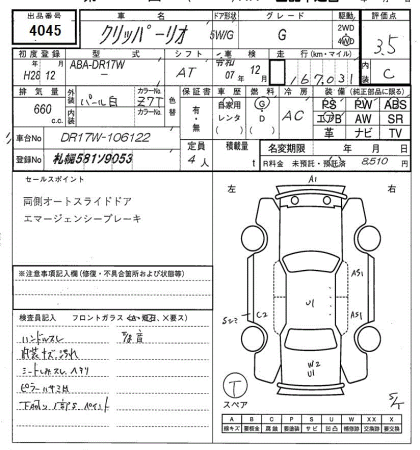 出品番号 車名 ドア形状 グレード 駆動 評価点
4045 クリッパーリオ 5W/G G 2WD 4WD 3.5
初度登録 型式 シフト 車検 走行 (km・マイル) 内装 C
H28 12 ABA-DR17W AT 令和 07 12月 167,031
排気量 外装 カラーNo. 内装 カラーNo. 色替 保証書 車歴 燃料 冷房 装備 (純正部品に限る)
660 c.c. パール白 Z7T 有・無 自家用 レンタ G D AC PS PW ABS
エアB AW SR
革 ナビ TV
車台No DR17W-106122 定員 積載量 名変期限 年 月 日
登録No 札幌581ワ9053 4人 t R料金 未預託・預託済 8510 円
セールスポイント
両側オートスライドドア
エマージェンシーブレーキ
左 A1 右
※注意事項記入欄 (修復・不具合箇所および状態等)
AS1
U1
C2
AS1
検査員記入 フロントガラス (A・飛石、X要ス)
ハンドルスレ
内装キズ、汚れ
シートしみスレ、ヘタリ
ピラーハサミ
W2
U1
T
スペア
A B C P S U W X XX
線キズ 要板金 腐蝕 要塗装 サビ 凹凸 補修跡 要交換 交換済